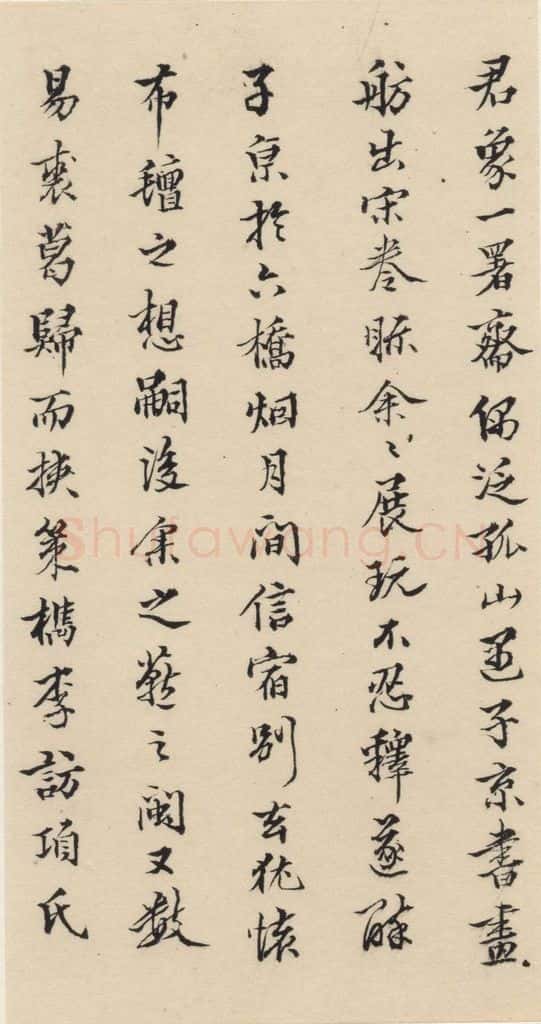 君象一署齋偶泛孤山過子京書畫
舫出宋卷眎余々展玩不忍釋遂
子京於六橋烟月間信宿別去猶懷
布氊之想嗣後余之燕之閩又數
易裘葛歸而挾策檇李訪項氏
Shufawang.CN